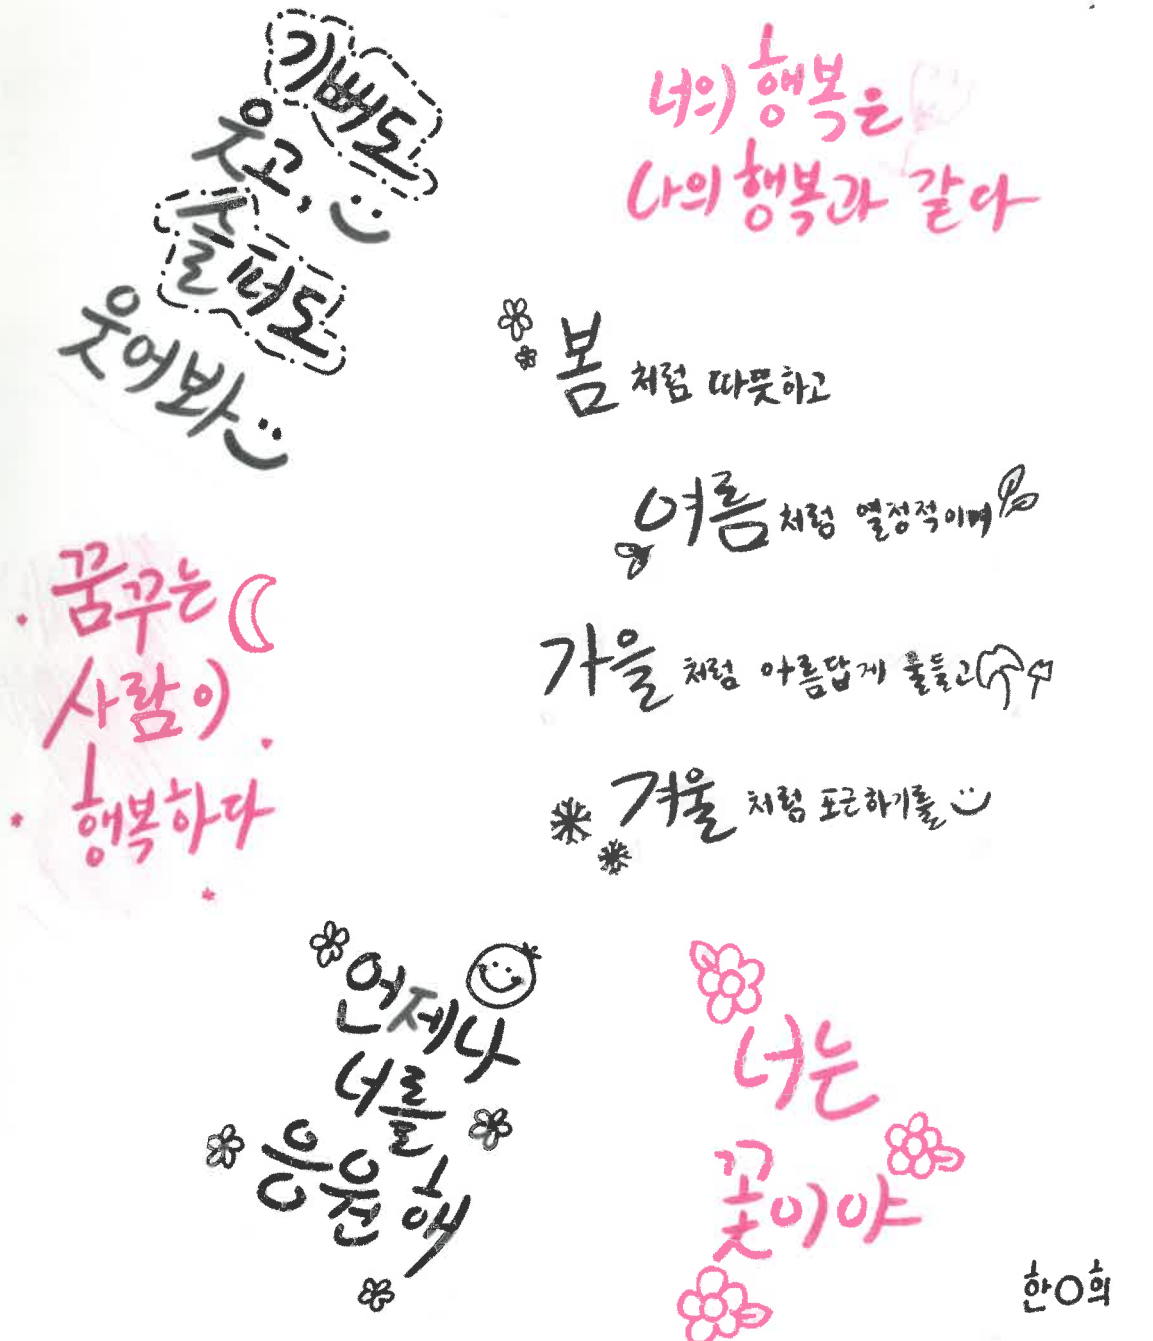 기뻐도
웃고,
슬퍼도
웃어봐
너의 행복은
나의 행복과 같다
봄처럼 따뜻하고
여름처럼 열정적이며
가을처럼 아름답게 물들고
겨울처럼 포근하기를
꿈꾸는
사람이
행복하다
언제나
너를
응원해
너는
꽃이야
한○희